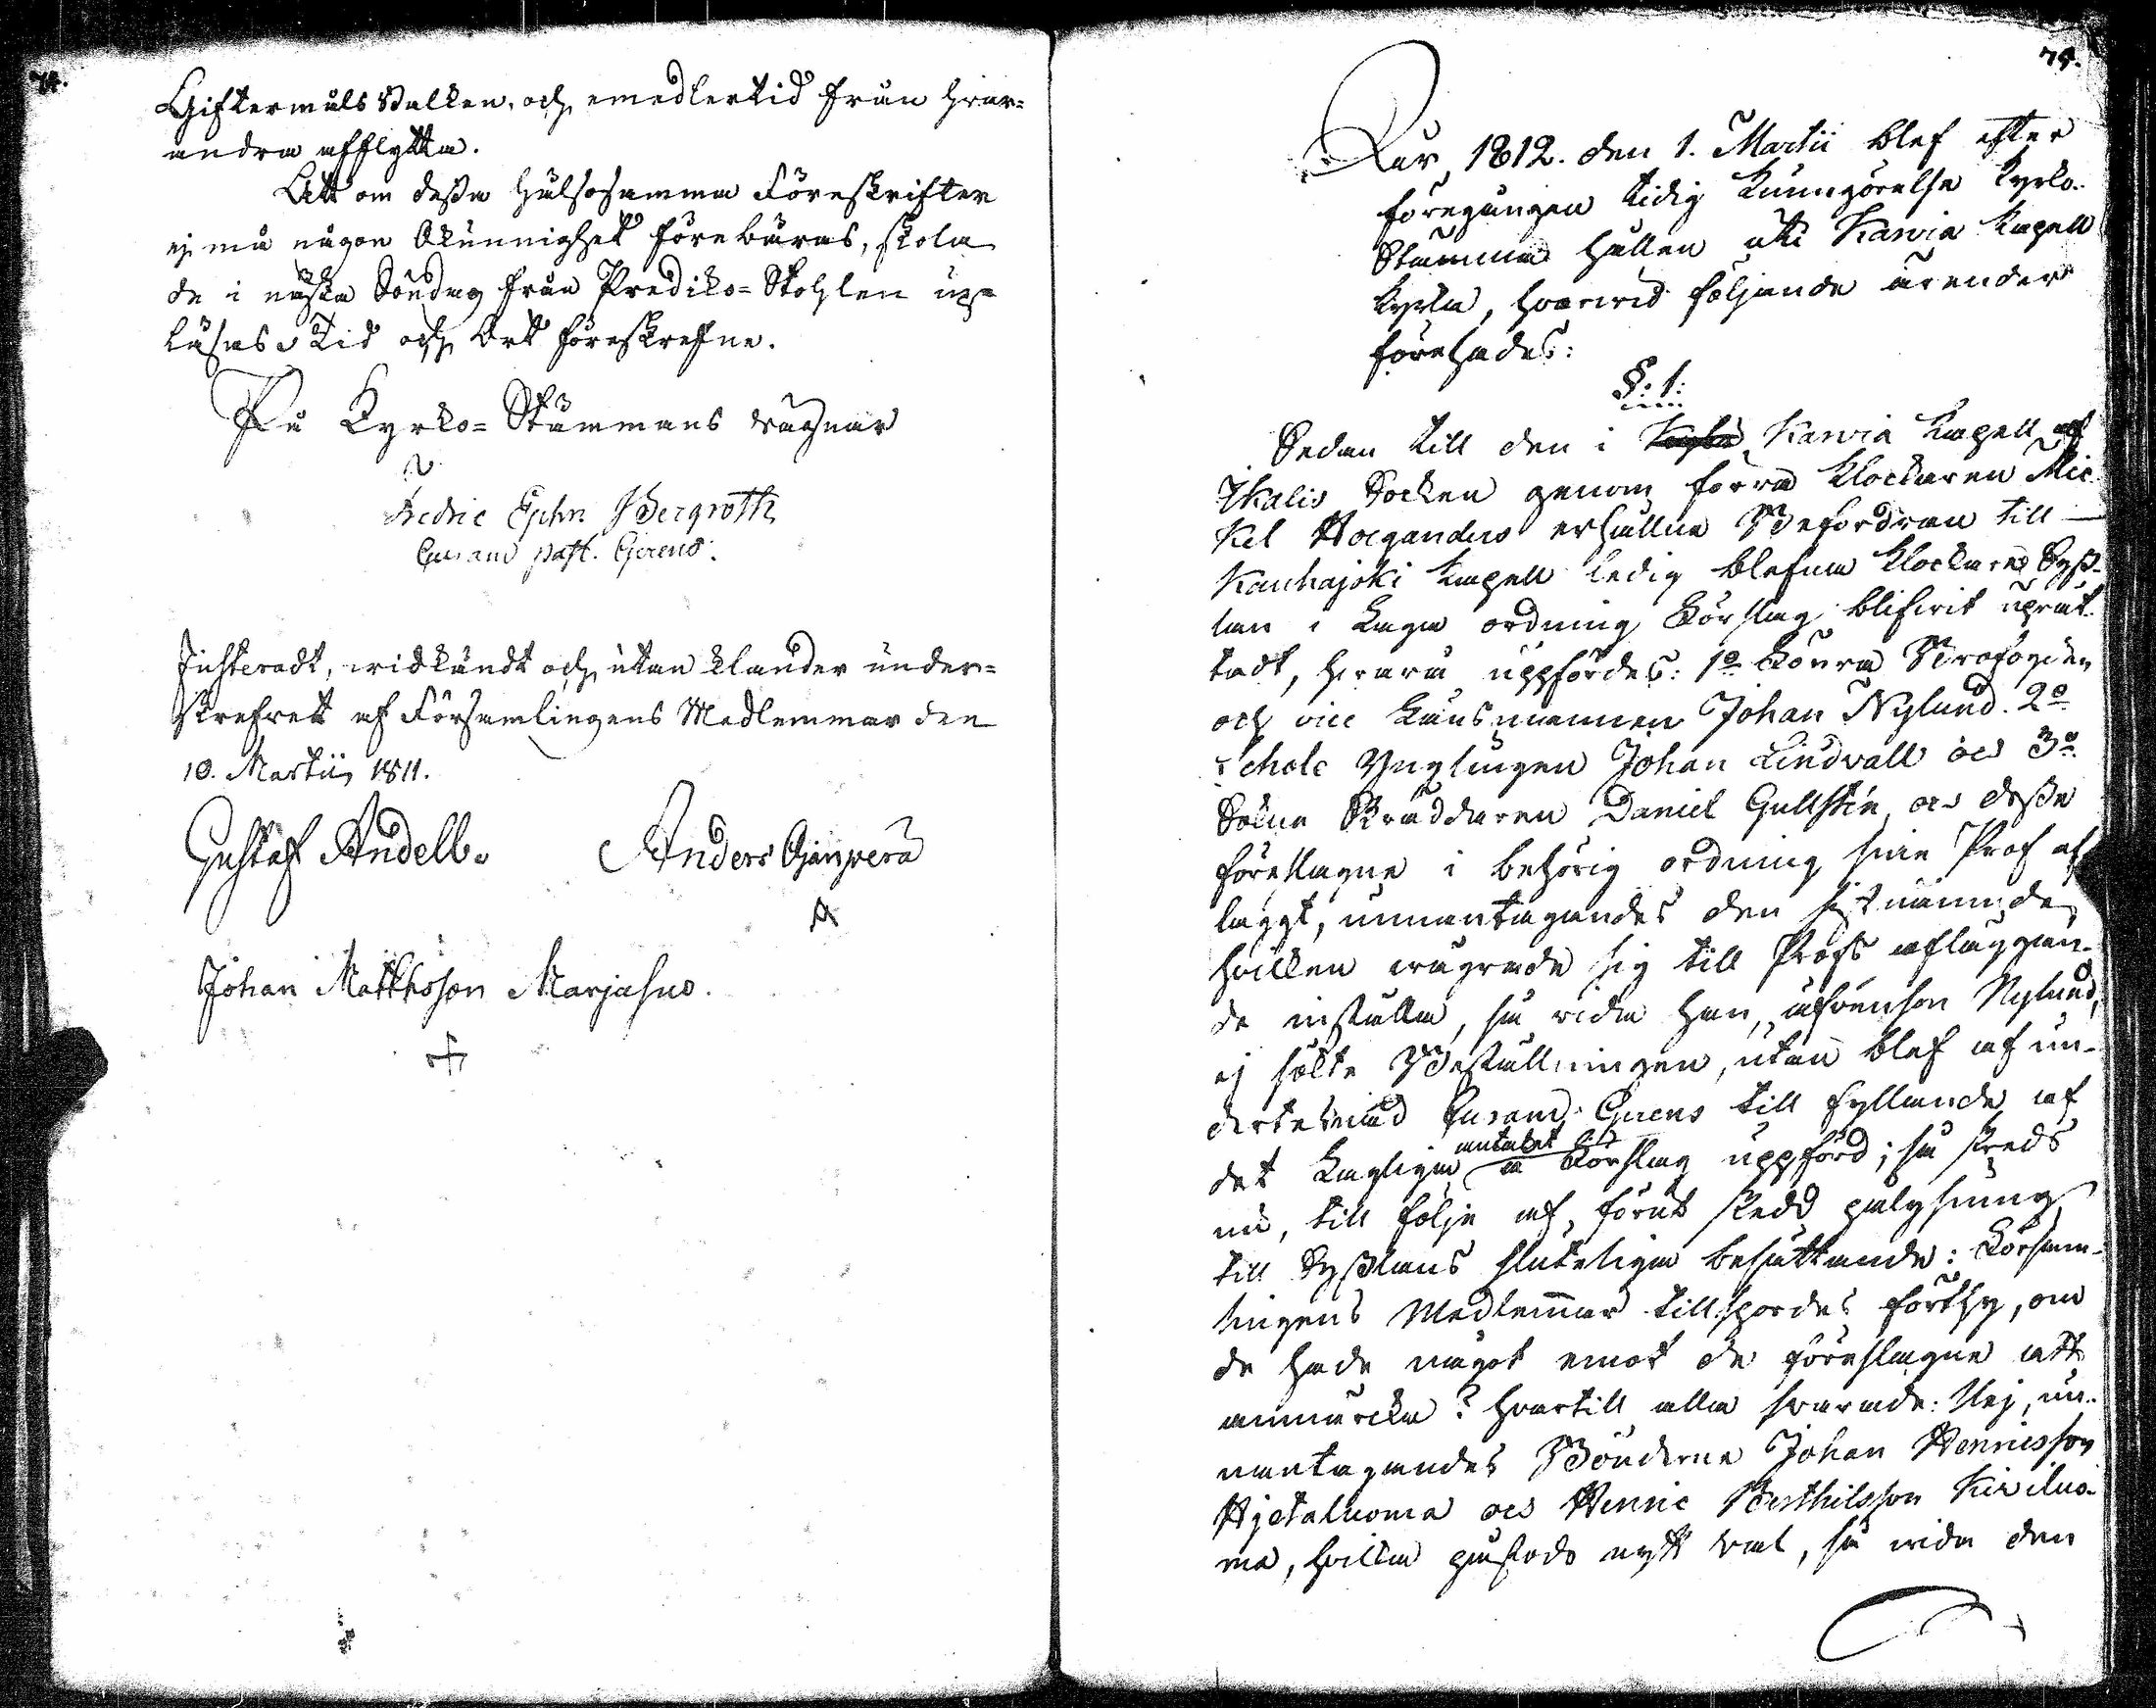 74.
Giftermåls Balken, och emedlertid från hvar-
andra afflytta.
Att om dessa hälsosamma Föreskrifter
ej må någon Okunnighet förebäras, skola
de i nästa Söndag från Prediko-Stohlen up-
läsas. Tid och Ort föreskrefne.
På Kyrko-Stämmans vägnar
Fredric Ephr. Bergroth
Cur. and past. Gerens.
Justeradt, vidkändt och utan klander under-
skrefvett af Församlingens Medlemmar den
10. Martii 1811.
Gustaf Andell. Anders Ojanperä
Johan Matthsson Marjasuo.
75.
År 1812. den 1. Martii blef efter
föregången tidig kungörelse Kyrko-
Stämma hållen uti Karvia Kapell
Kyrka, hvarvid följande ärender
förehades:
§: 1:
Sedan till den i Karvia Kapell af
Ikalis Socken genom förra Klockaren Mic-
kel Hoeganders erhållna Befordran till
Kauhajoki Kapell ledig blefna Klockare Syss-
lan i laga ordning Förslag blifvit uprät-
tadt, hvarå uppfördes: 1o Förra Brofogden
och vice Länsmannen Johan Nylund. 2o
Schole Ynglingen Johan Lindvall oc 3o
Sokne Skräddaren Daniel Gullstén, oc dessa
föreslagne i behörig ordning sina Prof af-
laggt, unnantagandes den sistnämnde,
hvilken vägrade sig till Profs afläggan-
de inställa, så vida han, äfvensom Nylund,
ej sökte Beställningen, utan blef af un-
dertecknad Curam Gerens till fyllande af
det Lagliga antalet å Förslag uppförd; så skreds
nu, till följe af, förut skedd pålysning,
till Sysslans slutelige besättande: Försam-
lingens Medlemmar tillspordes forthy, om
de hade något emot de föreslagne att
anmärcka? hvartill alla svarade: Nej, un-
nantagandes Bönderne Johan Henricsson
Hjetaluoma oc Henric Berthilsson Kiviluo-
ma, hvilka påstodo nytt val, så vida den